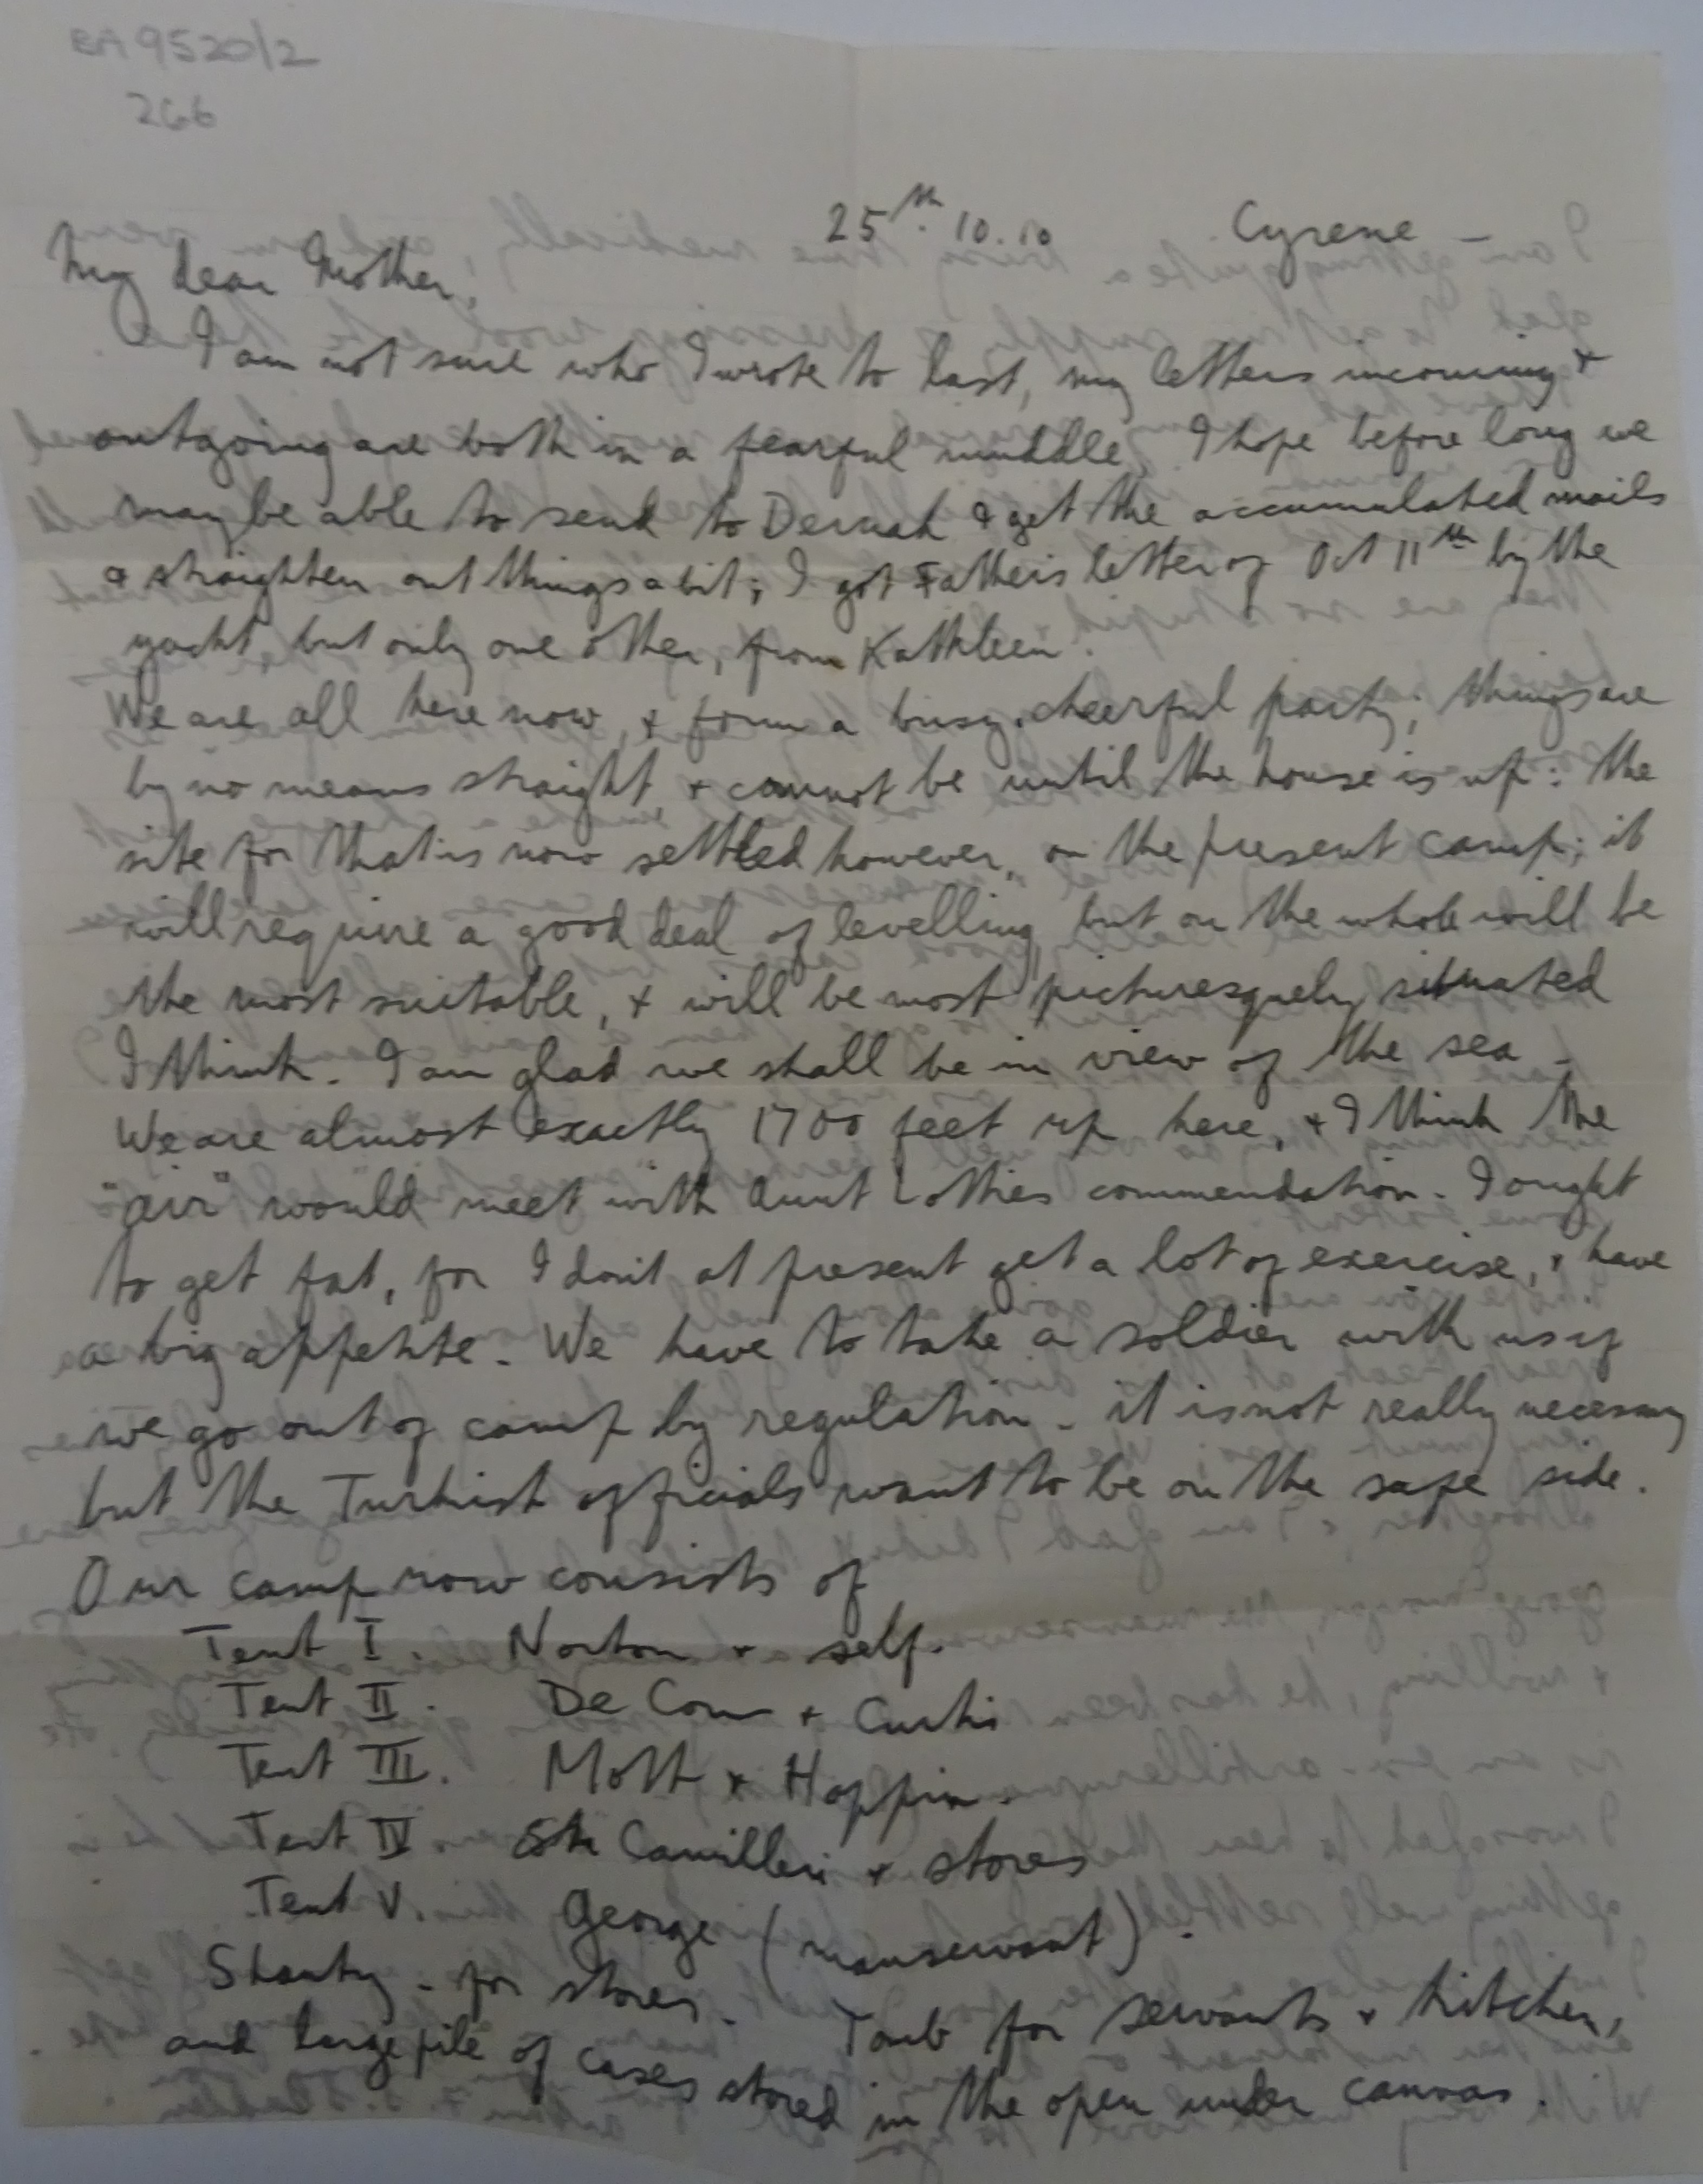 BA 9520/2
266
25th. 10. 10 Cyrene -
My dear Mother,
I am not sure who I wrote to last, my letters incoming &
outgoing are both in a fearful muddle. I hope before long we
may be able to send to Dernah & get the accumulated mails
& straighten out things a bit; I got Father's letter of Oct 11th by the
yacht, but only one other, from Kathleen.
We are all here now, & form a busy, cheerful party; things are
by no means straight, & cannot be until the house is up: the
site for that is now settled however, on the present camp; it
will require a good deal of levelling, but on the whole will be
the most suitable, & will be most picturesquely situated
I think. I am glad we shall be in view of the sea -
We are almost exactly 1700 feet up here, & I think the
"air" would meet with Aunt Lotties commendation. I ought
to get fat, for I don't at present get a lot of exercise, & have
a big appetite. We have to take a soldier with us if
we go out of camp by regulation - it is not really necessary
but the Turkish officials want to be on the safe side.
Our camp now consists of
Tent I. Norton & self.
Tent II. De Cou & Curtis
Tent III. Mott & Hoppin.
Tent IV. Camilleri & stores
Tent V. George (manservant).
Shanty - for stores. Tomb for servants & kitchen,
and large pile of cases stored in the open under canvas.